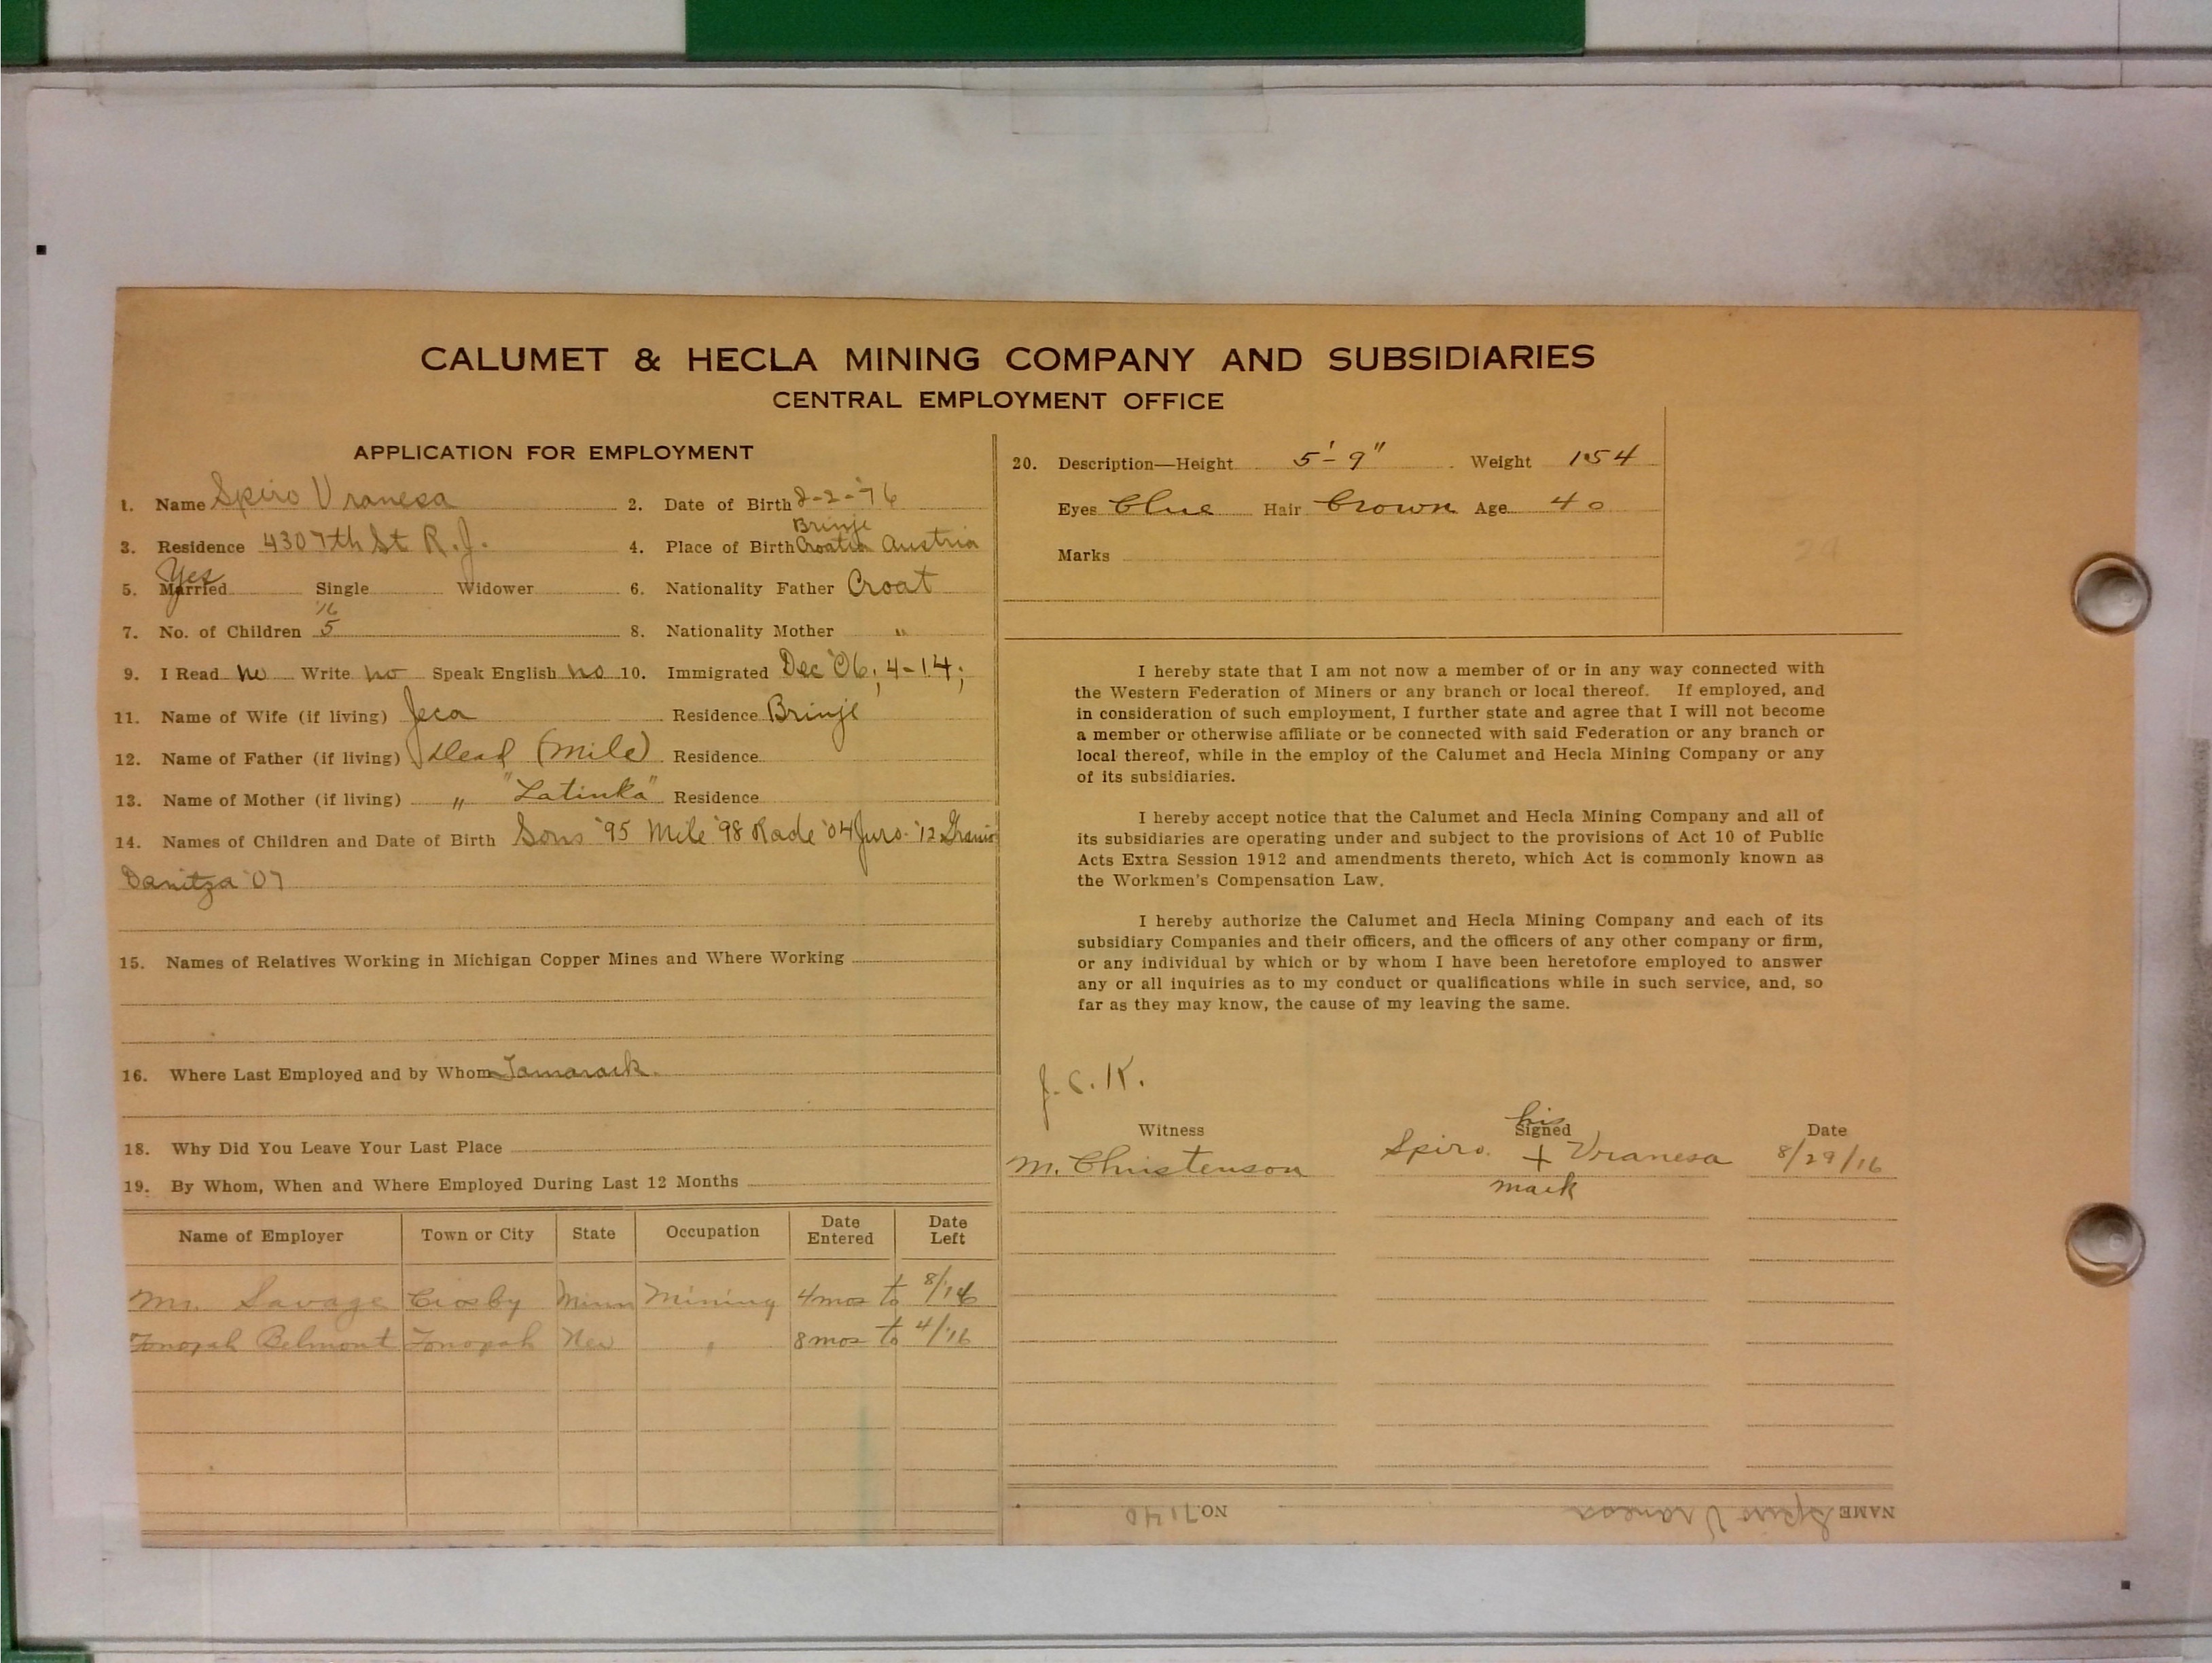 CALUMET & HECLA MINING COMPANY AND SUBSIDIARIES
CENTRAL EMPLOYMENT OFFICE
APPLICATION FOR EMPLOYMENT
1. Name Spiro Vranesa 2. Date of Birth 2-2-'76
3. Residence 430 7th St R.J. 4. Place of Birth Brinje Croatia Austria
5. Married Yes Single Widower 6. Nationality Father Croat
7. No. of Children '16 5 8. Nationality Mother "
9. I Read no Write no Speak English no 10. Immigrated Dec '06; 4-14;
11. Name of Wife (if living) Jeca Residence Brinje
12. Name of Father (if living) Dead (Mile) Residence
13. Name of Mother (if living) " "Latinka" Residence
14. Names of Children and Date of Birth Sons '95 Mile '98 Rade '04 Juro '12
Danitza '07
15. Names of Relatives Working in Michigan Copper Mines and Where Working
16. Where Last Employed and by Whom Tamarack.
18. Why Did You Leave Your Last Place
19. By Whom, When and Where Employed During Last 12 Months
Name of Employer Town or City State Occupation Date Entered Date Left
Mr. Savage Crosby Minn Mining 4 mos to 8/16
Tonopah Belmont Tonopah Nev " 8 mos to 4/'16
20. Description—Height 5'-9" Weight 154
Eyes Blue Hair Brown Age 40
Marks
24
I hereby state that I am not now a member of or in any way connected with
the Western Federation of Miners or any branch or local thereof. If employed, and
in consideration of such employment, I further state and agree that I will not become
a member or otherwise affiliate or be connected with said Federation or any branch or
local thereof, while in the employ of the Calumet and Hecla Mining Company or any
of its subsidiaries.
I hereby accept notice that the Calumet and Hecla Mining Company and all of
its subsidiaries are operating under and subject to the provisions of Act 10 of Public
Acts Extra Session 1912 and amendments thereto, which Act is commonly known as
the Workmen's Compensation Law.
I hereby authorize the Calumet and Hecla Mining Company and each of its
subsidiary Companies and their officers, and the officers of any other company or firm,
or any individual by which or by whom I have been heretofore employed to answer
any or all inquiries as to my conduct or qualifications while in such service, and, so
far as they may know, the cause of my leaving the same.
J.C.K.
Witness Signed Date
M. Christenson Spiro his + mark Vranesa 8/29/16
NAME Spiro Vranesa NO. 7140